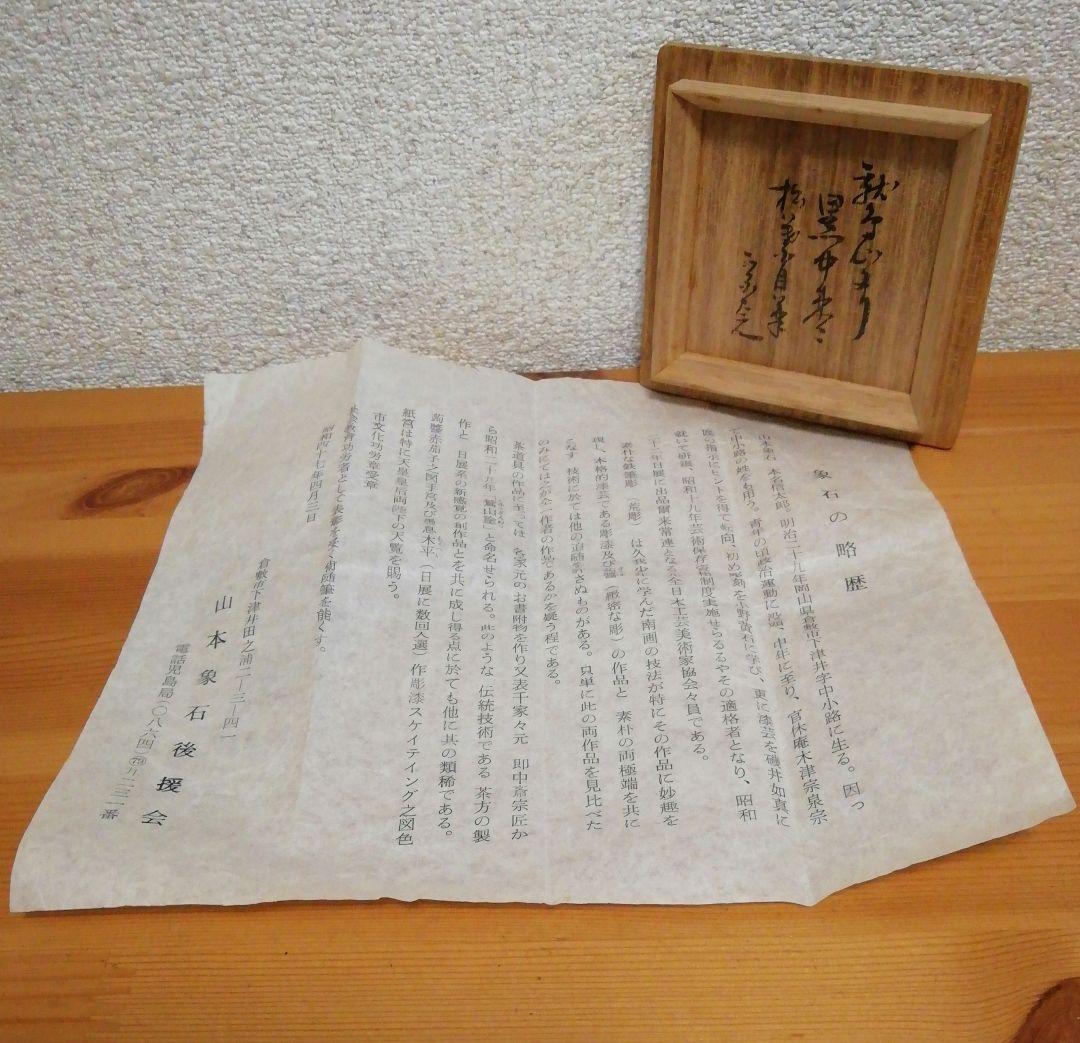 象石の略歴
山本象石 本名信太郎。明治二十九年岡山県倉敷市下津井字中小路に生る。因っ
て中小路の姓をも用う。青年の頃政治運動に没頭、中年に至り、官休庵木津宗泉宗
匠の指示にヒントを得て転向、初め彫刻を小野黄石に学び、更に漆芸を磯井如真に
就いて研磨、昭和十九年芸術保存資格制度実施せらるるやその適格者となり、昭和
二十一年日展に出品爾来常連となる全日本工芸美術家協会々員である。
素朴な鉄筆彫(荒彫)は久我少年に学んだ南画の技法が特にその作品に妙趣を
現し、本格的漆芸である彫漆及び(緻密な彫)の作品と 素朴の両極端を共に
こなす 技術に於ては他の追随許さぬものがある。只単に此の両作品を見比べた
のみにてはこれが全一作者の作品であるかを疑う程である。
茶道具の作品に至っては 各家元のお書附物を作り又表千家々元 即中斎宗匠か
ら昭和二十九年「鷲山塗」と命名せられる。此のような 伝統技術である 茶方の製
作と 日展系の新感覚の創作品とを共に成し得る点に於ても他に其の類稀である。
蒟醬赤茄子之図手宮及び黒息木平(日展に数回入選)作彫漆スケイテイング之図色
紙筥は特に天皇皇后両陛下の天覧を賜う。
市文化功労章受章
社会教育功労者として表彰を受く尚随筆を能くす。
昭和四十七年四月三日
倉敷市下津井田之浦二―三―四一
山本象石後援会
電話児島局(〇八六四)二三一番
黒中棗